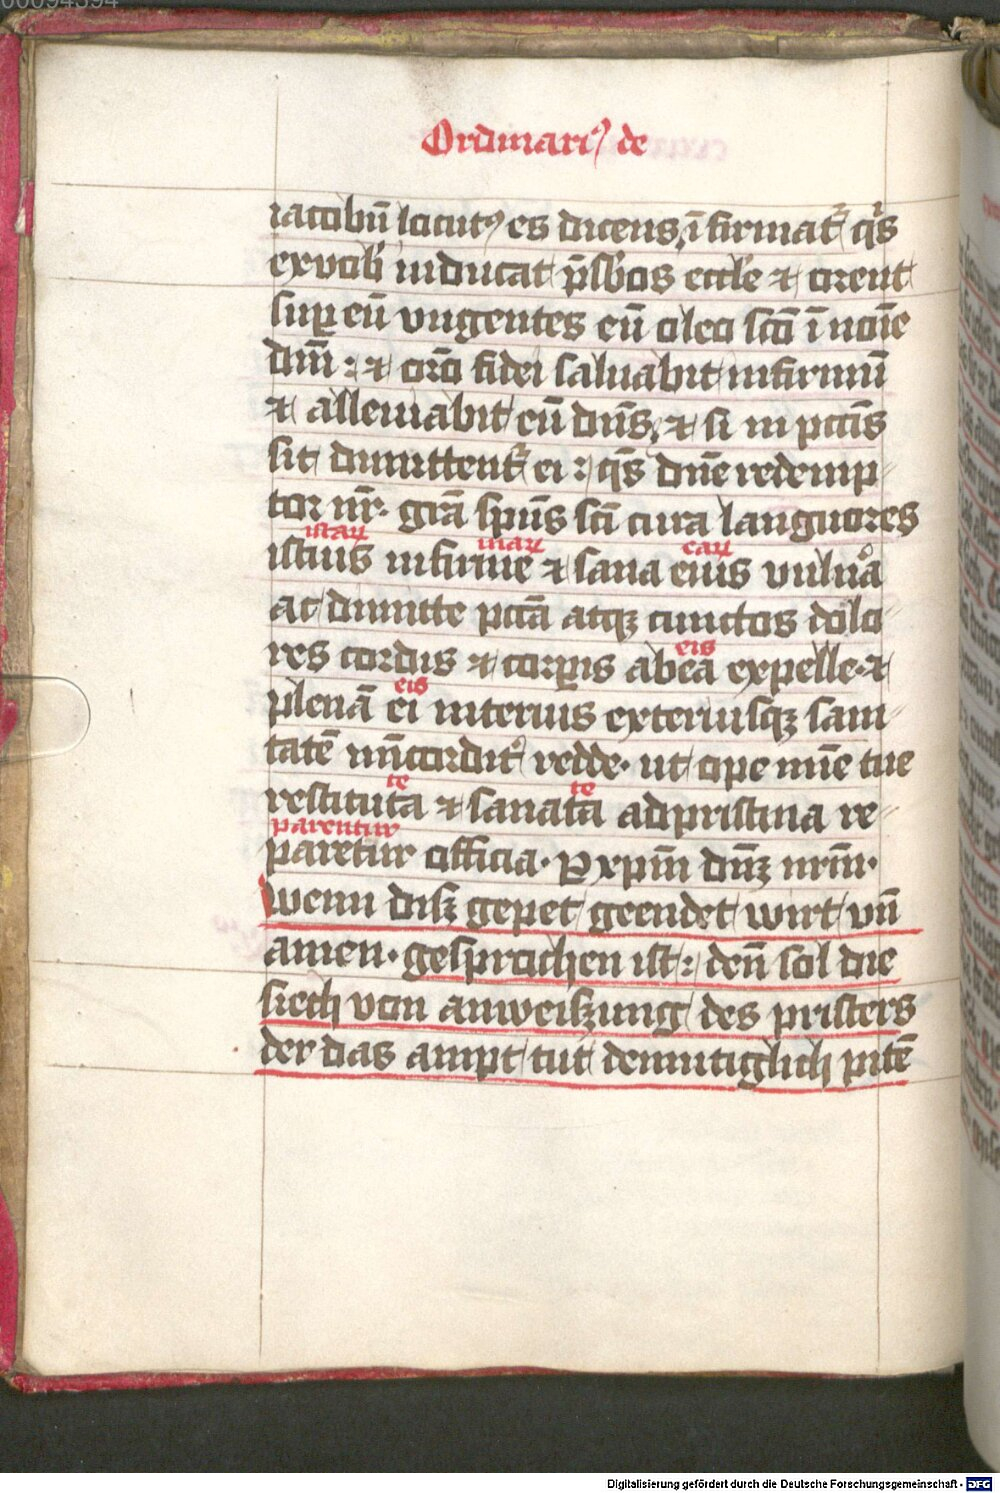 Ordinariꝰ de
iacobū locutꝰ es dicens, īfirmat᷑ qͥs
exvob̕ inducat p̄sb̄os eccl̕e ⁊ orent
suꝑ eū vngentes eū oleo sc̄o ī noīe
dn̄i : ⁊ or̄o fidei saluabit infirmū
⁊ alleuiabit eū dn̄s, ⁊ si in pctīs
sit dimittent᷑ ei : qs̄ dn̄e redemp
tor nr̄. gr̄a sp̄us sc̄i cura languores
istaꝝ
maꝝ
eaꝝ
istius infirme ⁊ sana eius vulnͣa
ac dimitte pctā atqꝫ cunctos dolo
eis
res cordis ⁊ corꝑis abea expelle. ⁊
eis
plenā ei interius exteriusqꝫ sani
tatē mīcordit᷑ redde. ut ope mīe tue
te
te
restituta ⁊ sanata adpristina re
parentur
paretur officia. Ꝑ xp̄m dn̄ꝫ nrm̄.
wenn disz gepet geendet wirt vn̄
amen. gesprochen ist : den̄ sol die
siech von anweiszung des pristers
der das ampt tut demutiglich pitē
00094394
Digitalisierung gefördert durch die Deutsche Forschungsgemeinschaft - DFG